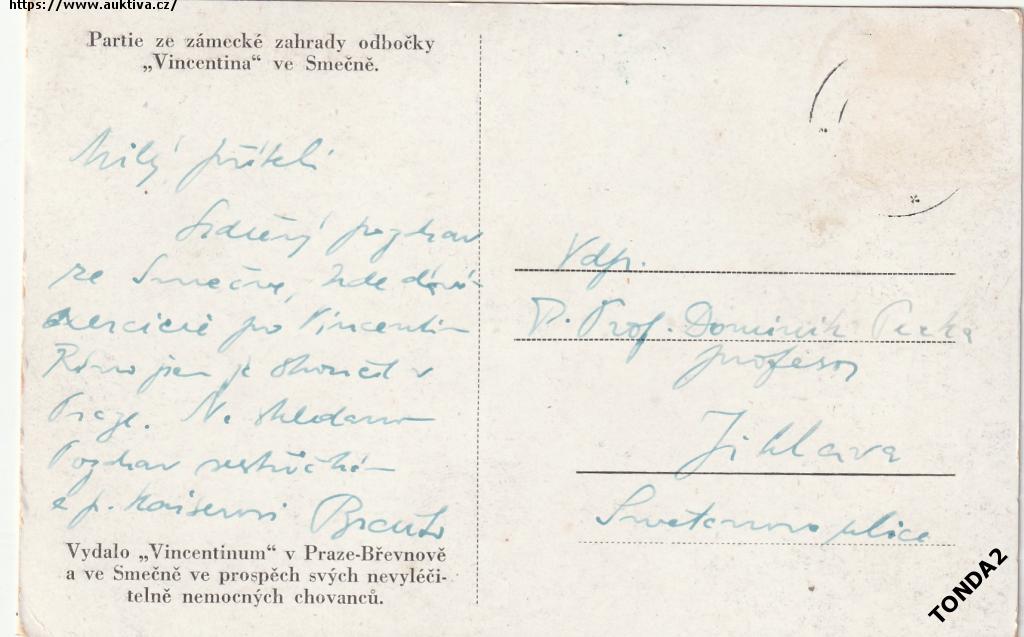 https://www.auktiva.cz/
Partie ze zámecké zahrady odbočky
„Vincentina“ ve Smečně.
Milý příteli
Srdečný pozdrav
ze Smečna, kde dává-
exercicie pro Vincentin
Ráno jsem je skončil v
Praze. Na shledanou
Pozdrav sestřičkám
a p. Kaiserovi
Vydalo „Vincentinum“ v Praze-Břevnově
a ve Smečně ve prospěch svých nevyléči-
telně nemocných chovanců.
Vdp.
P. Prof. Dominik Pecka
profesor
Jihlava
Smetanova ulice
TONDA2